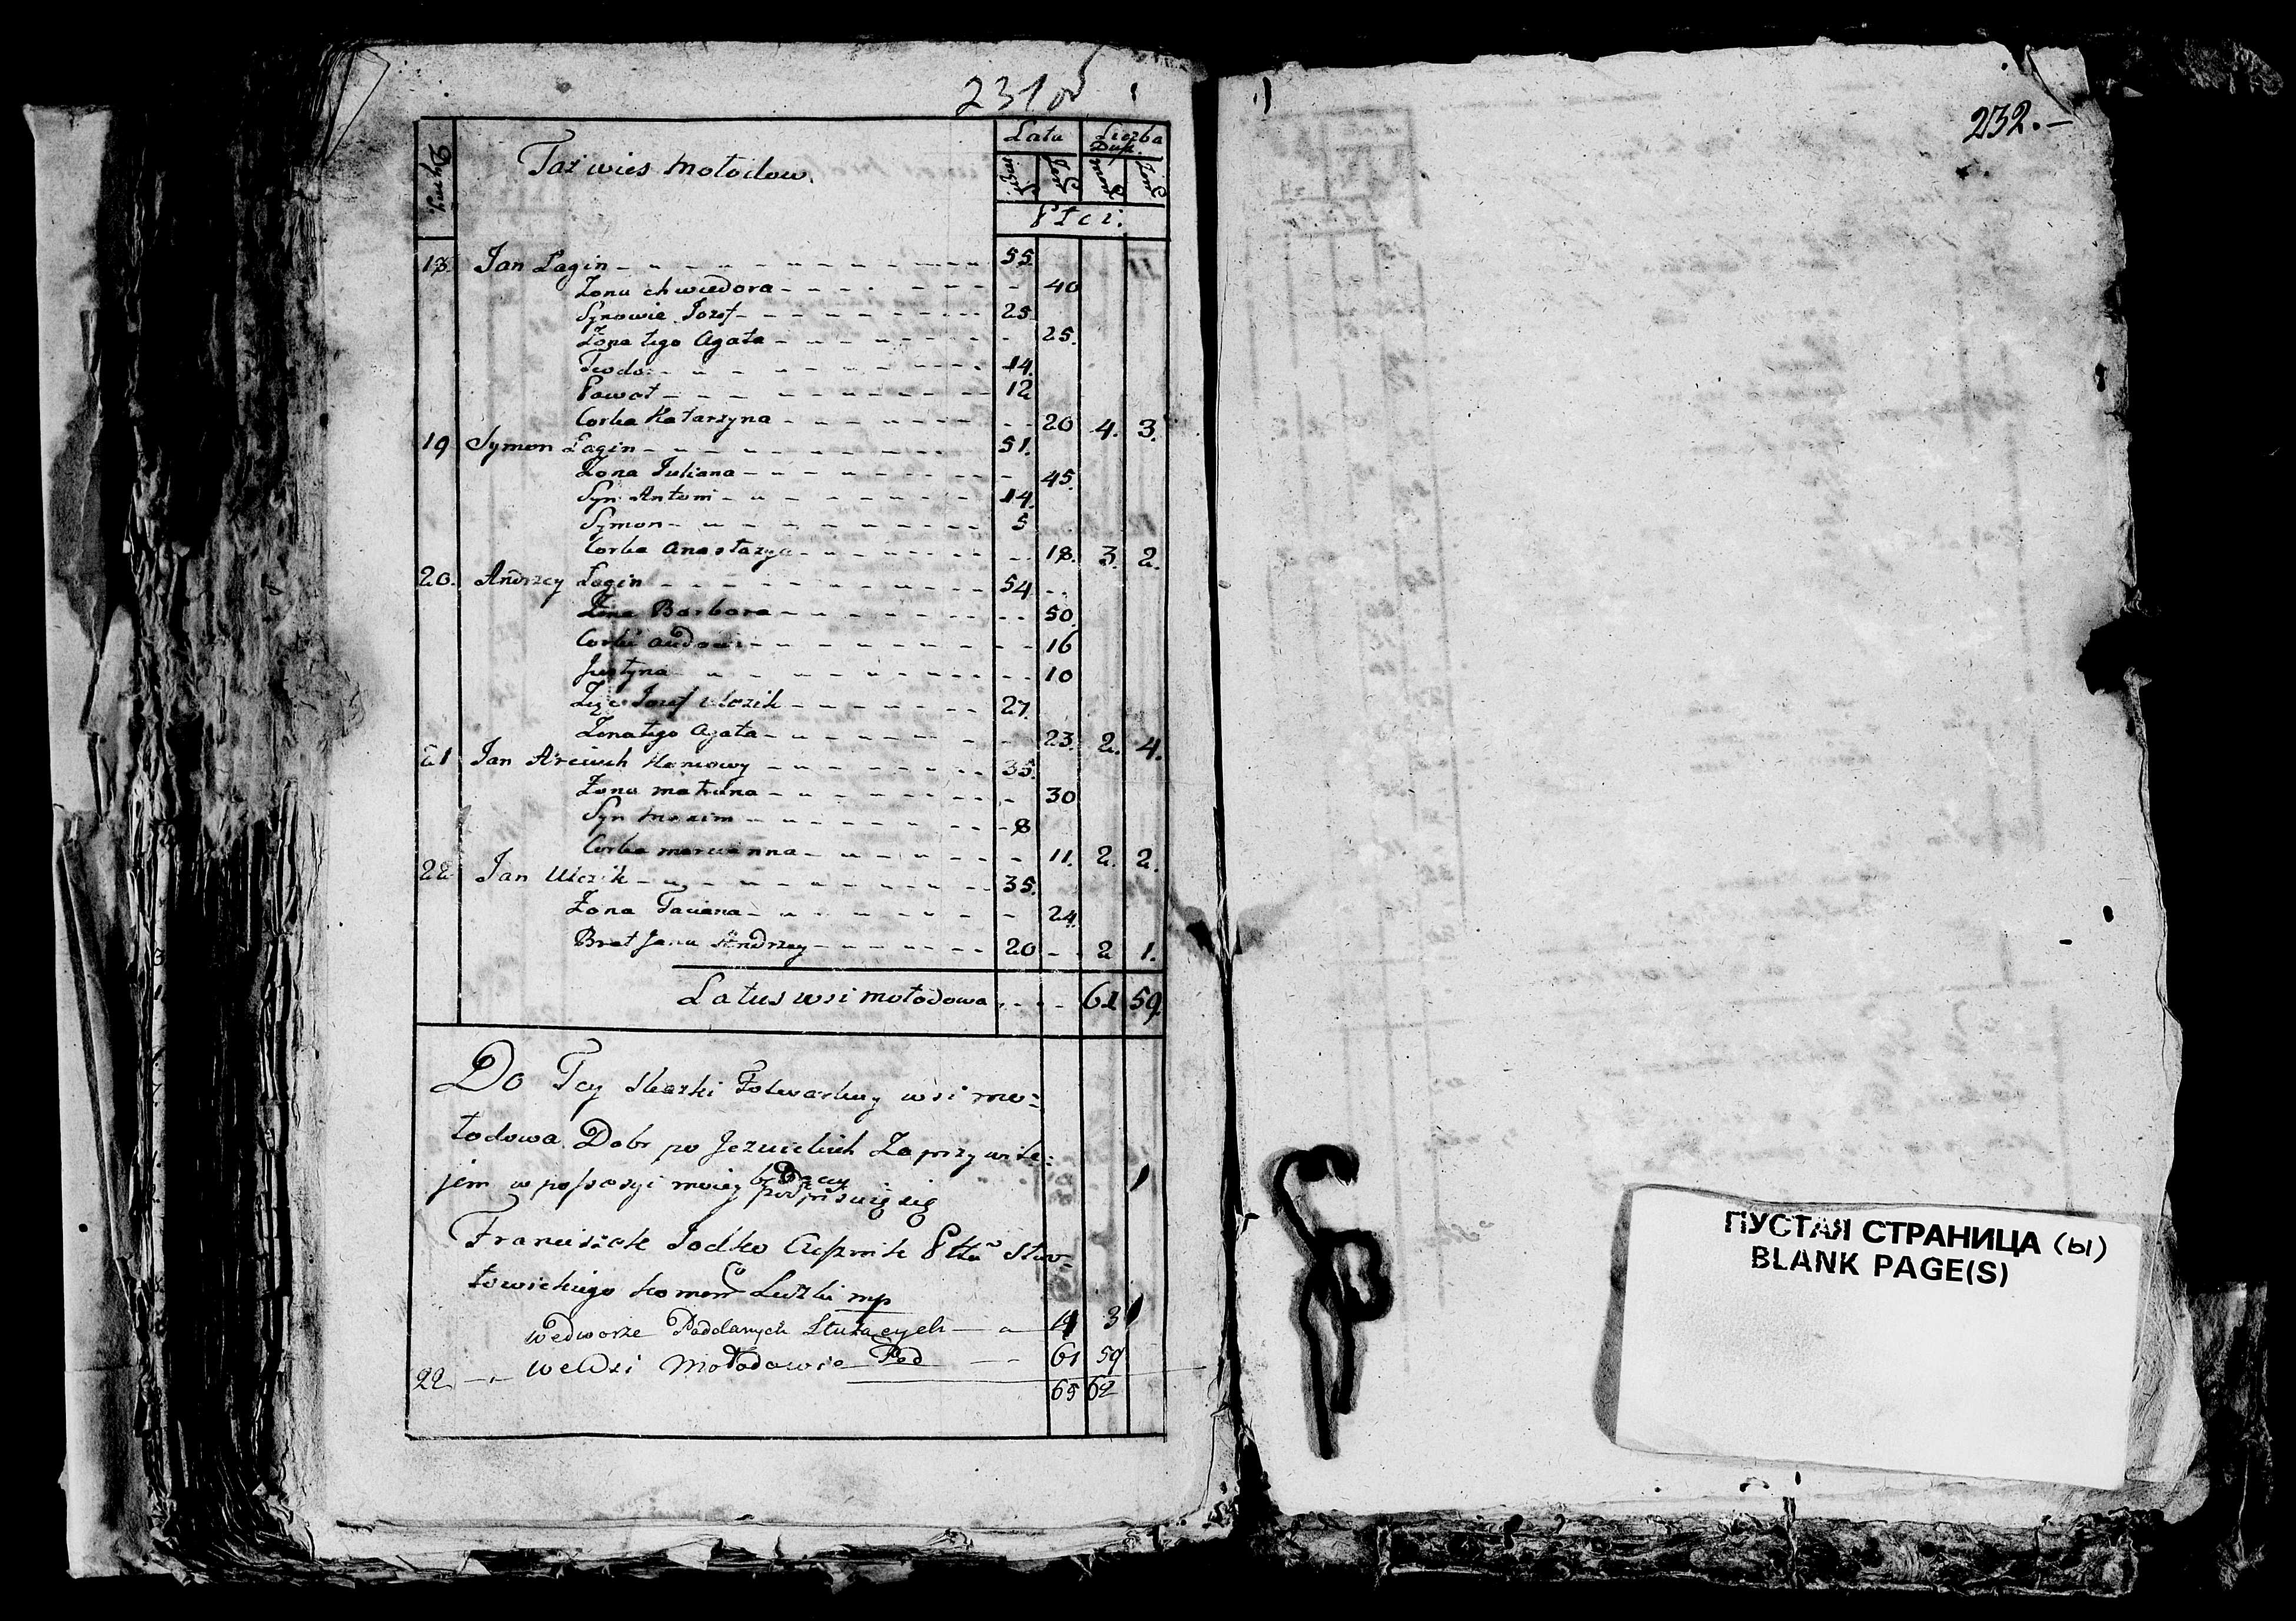 231 об
Dymy. Taż wieś Mołodow. Lata Liczba Dusz.
Płci.
18. Jan Łagin 55.
Zona chwiedora 40
Synowie Jozef 25
Żona tego Agata 25.
Teodor 14.
Paweł 12
Corka Katarzyna 20 4. 3.
19 Symon Łagin 51.
Zona Juliana 45.
Syn Antoni 14.
Symon 5
Corka Anastazya 18. 3. 2.
20. Andrzey Łagin 54
Zona Barbara 50.
Corki
Justyna 10
Jozef 27.
Zona tego Agata 23. 2. 4.
21 Jan 35.
Żona matruna 30
Syn Maxim 8
Corka maryanna 11. 2. 2.
22 Jan Ulczik 35.
Żona Taciana 24.
Brat Jana Andrzey 20 2 1.
Latus wsi mołodowa 61 59.
Do Tey skazki Folwarku y wsi mo-
łodowa Dobr po Jezuickich Za przywile-
jem w possesyi moiey będący
podpisuię się
Franciszek Jodko
towickiego mp
wedworze Poddanych Służących 4 3
22 weWsi Mołodowie Pod 61 59
65 62
232.
ПУСТАЯ СТРАНИЦА (Ы)
BLANK PAGE(S)